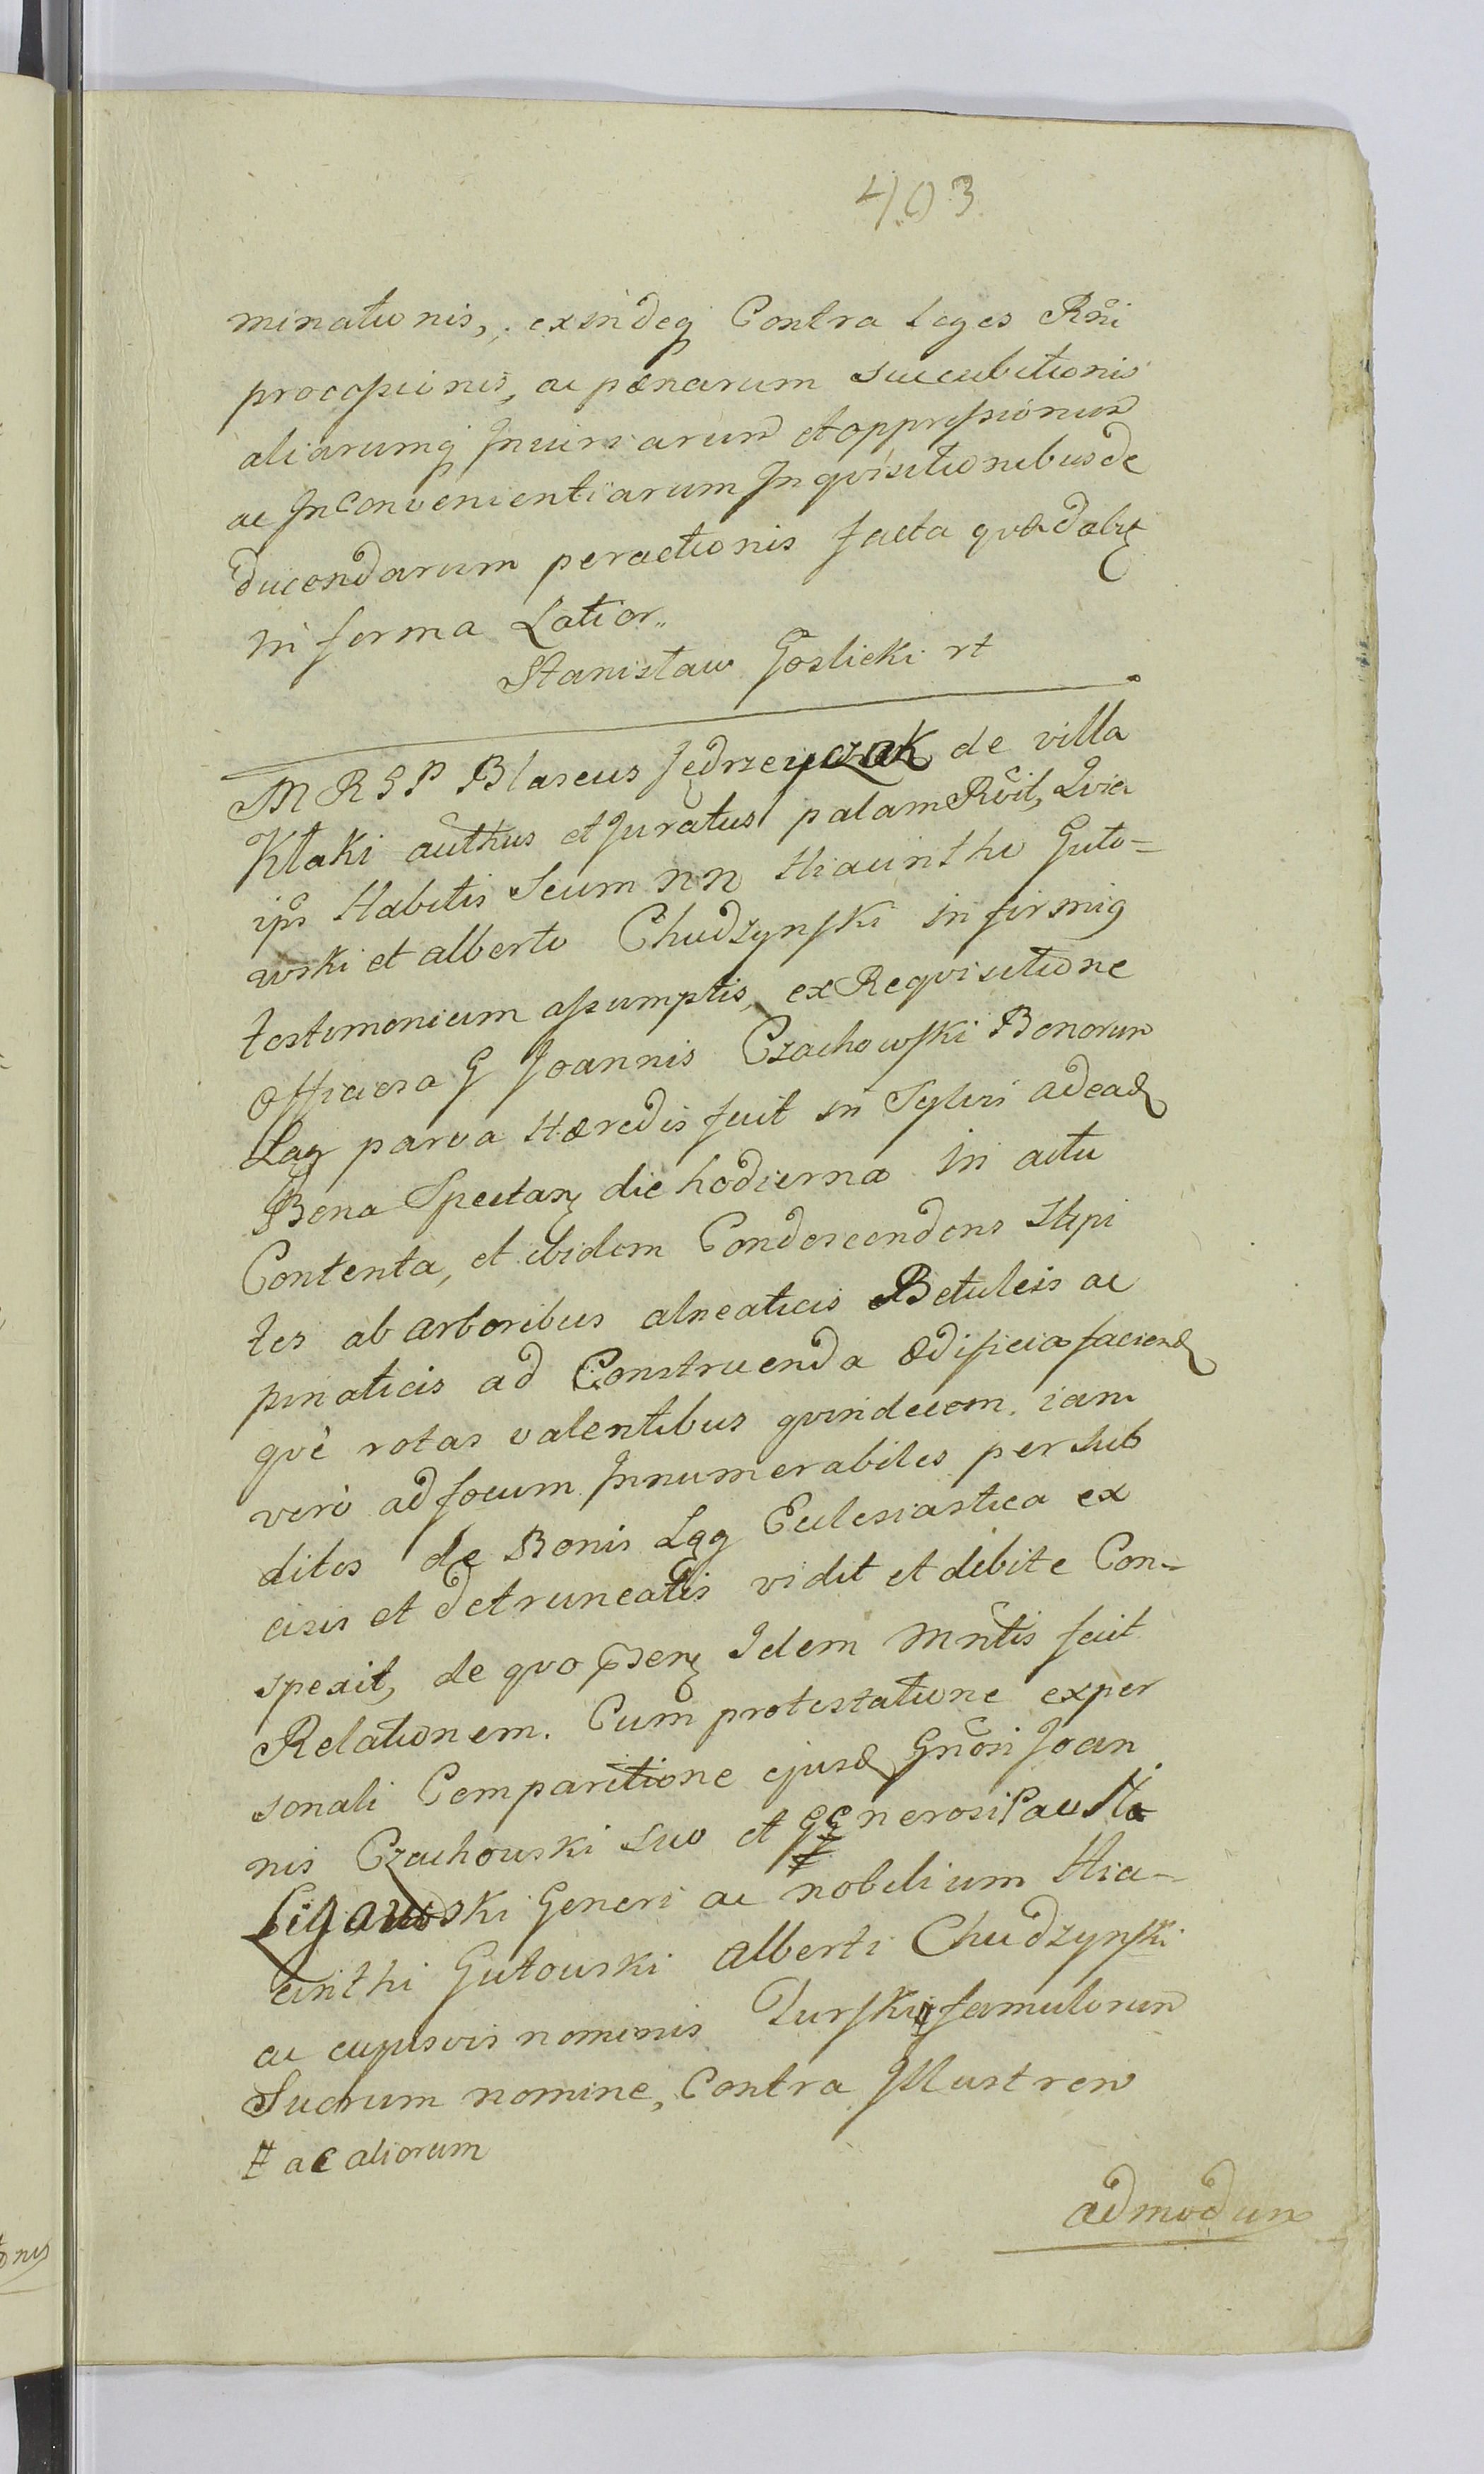 403
minationis, exindeq Contra Leges Rni
processionis, ac pænarum succubitionis
aliarumq Iniuriarum et oppressionum
ac Inconvenientiarum Inqvisitionibus de
ducendarum peractionis facta qvæ dabit
in forma Latior„
Stanisław Goslicki rt
M R S P Blaseus Jędrzeyczak de villa
Kłaki authus et Juratus palam Rvit, Qvia
ips Habitis Secum nn Hiacintho Guto=
wski et alberto Chudzynski in firmig
testimonium assumptis, ex Reqvisitione
officiosa G Joannis Czachowski Bonorum
Lag parva Hæredis fuit in Sylvis ad ead
Bona Spectan die hodierna in actu
Contenta, et ibidem Condescendens Stipi
tes ab arboribus alneaticis Betuleis ac
pinaticis ad Construenda ædificia faciend
qve rotas valentibus qvindecem. iam
vero ad focum Innumerabiles per sub
ditos de Bonis Łąg Eclesiastica ex
cisis et detruncatis vidit et debite Con-
spexit, de qvo præsen Idem Mntis fecit
Relationem. Cum protestatione ex per
sonali Comparitione ejusd Gnosi Joan
nis Czachowski suo et generosi Pausti
Ligowski Generi ac nobilium Hia-
cinthi Gutowski alberti Chudzynski
ac cujusvis nominis Turski # famulorum
Suorum nomine, Contra Illustrem
# ac aliorum
admodum